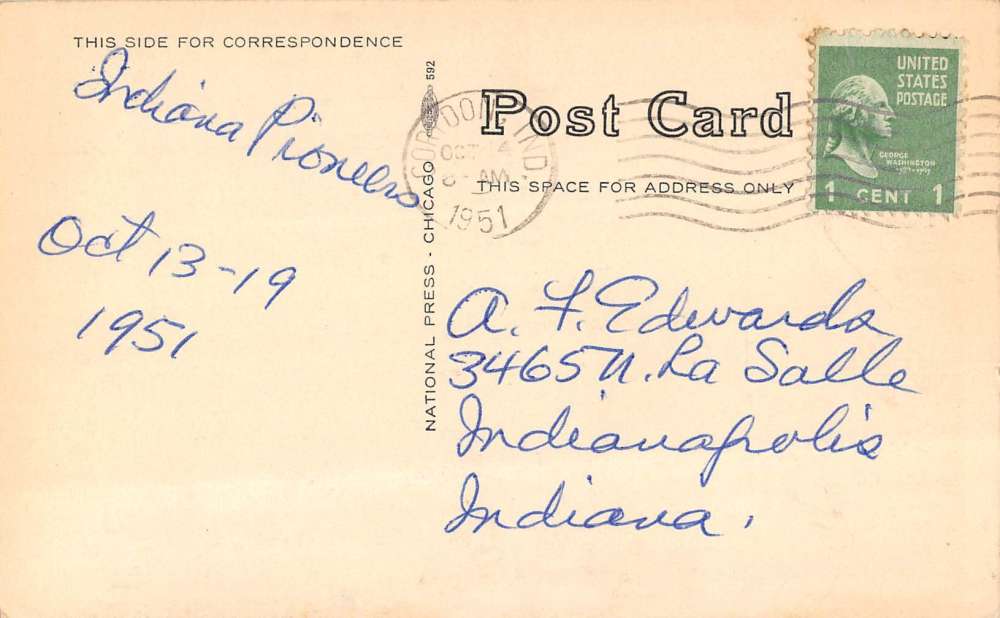 THIS SIDE FOR CORRESPONDENCE
Indiana Pioneers
Oct 13-19
1951
NATIONAL PRESS - CHICAGO 592
Post Card
THIS SPACE FOR ADDRESS ONLY
CORYDON, IND.
OCT 14
AM
1951
UNITED
STATES
POSTAGE
GEORGE
WASHINGTON
1789-1797
1 CENT 1
A. F. Edwards
3465 N. La Salle
Indianapolis
Indiana.